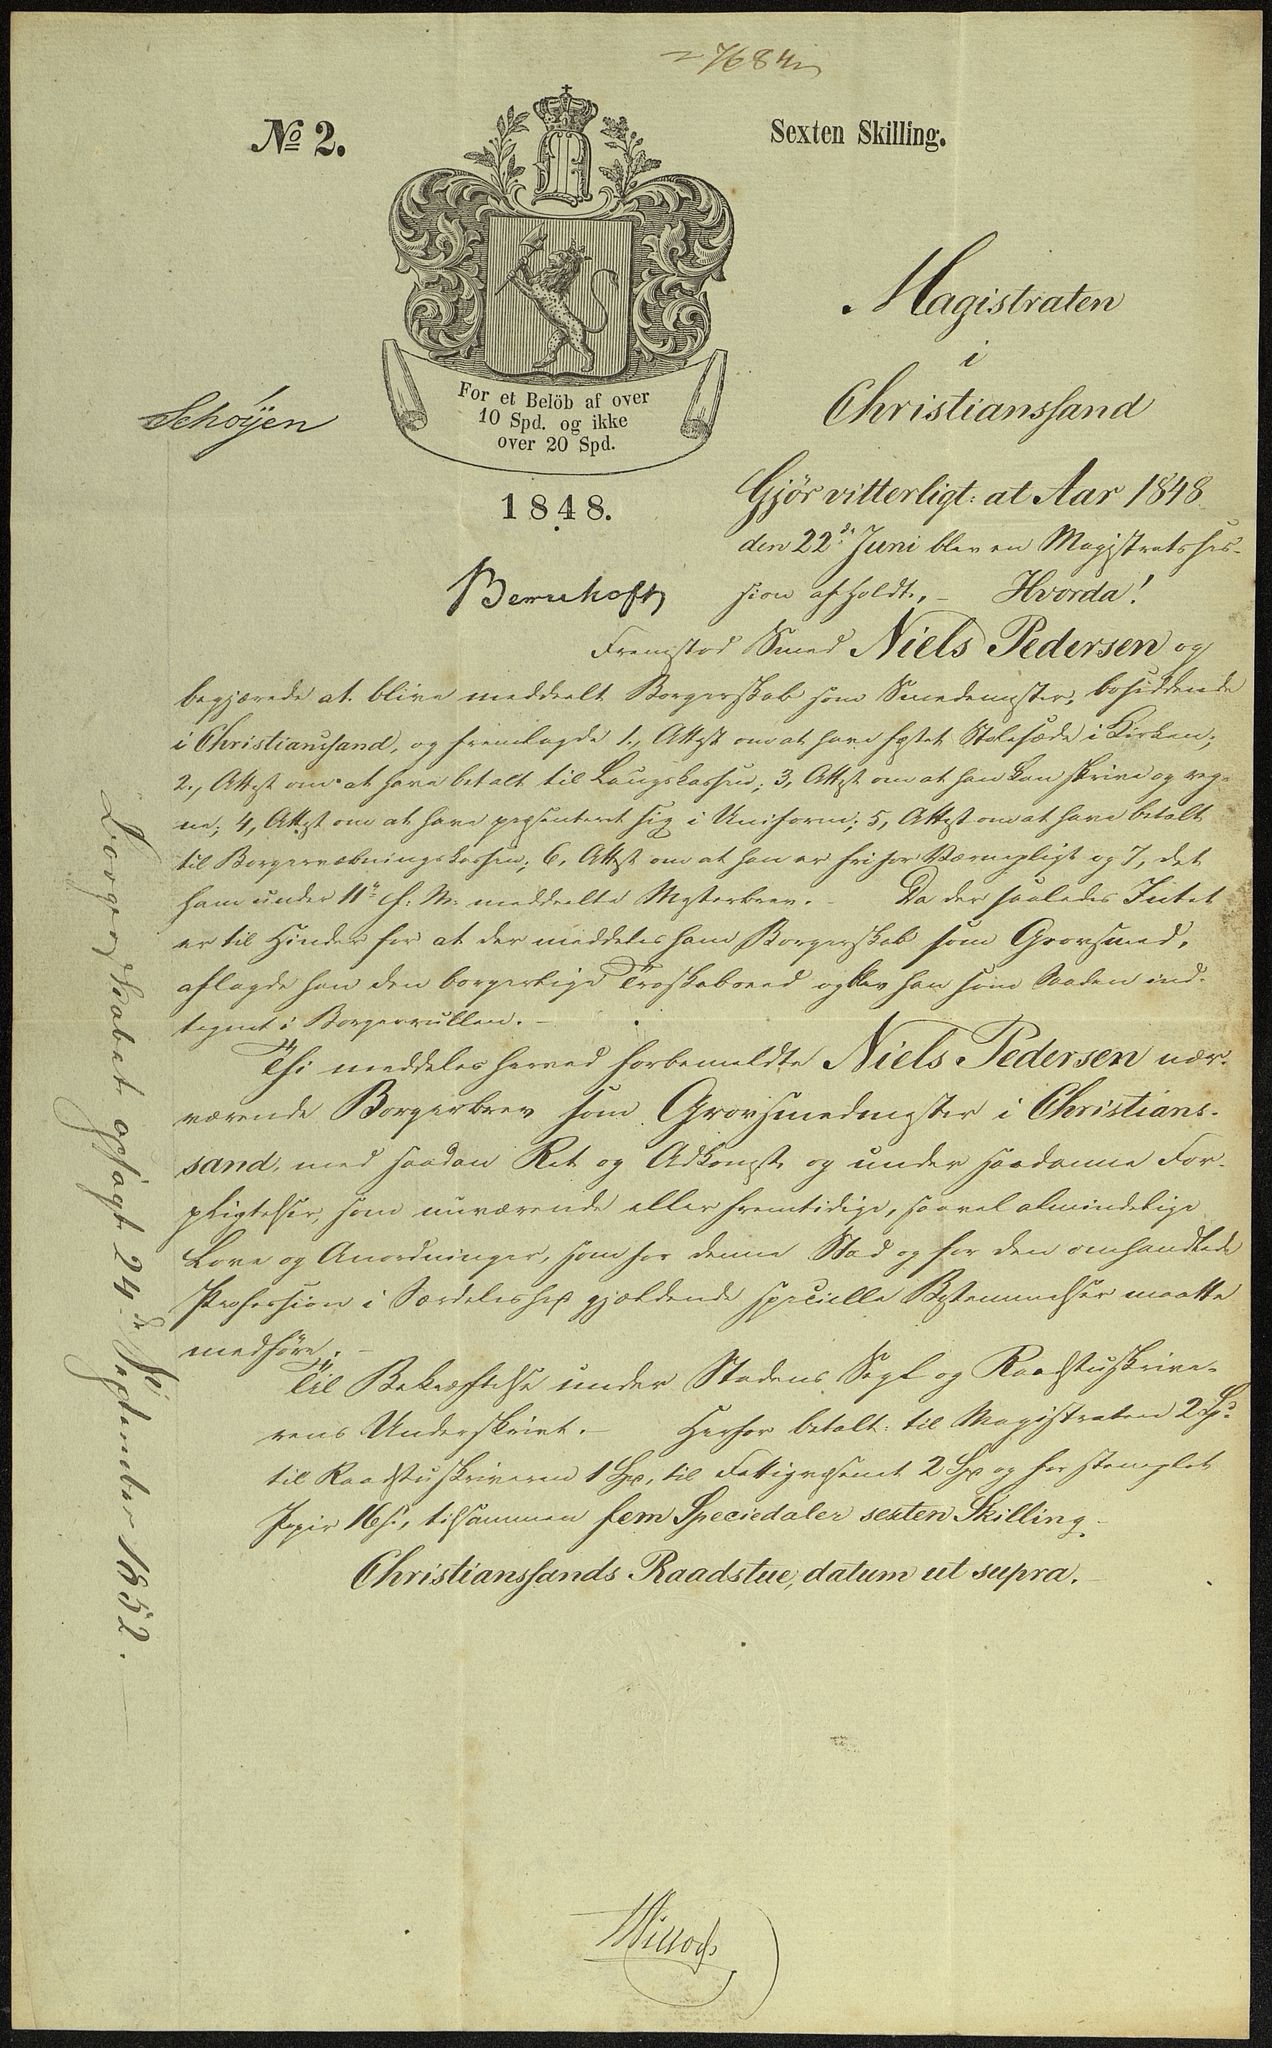 7684
No 2.
Sexten Skilling.
For et Belöb af over
10 Spd. og ikke
over 20 Spd.
1848.
Schöyen
Magistraten
i
Christianssand
Gjör vitterligt: at Aar 1848
den 22de Juni blev en Magistratsses-
sion afholdt, – Hvorda!
Fremstod Smed Niels Pedersen og
begjærede at blive meddeelt Borgerskab som Smedemester, bosiddende
i Christianssand, og fremlagde 1., Attest om at have fæstet Stolesæde i Kirken;
2., Attest om at have betalt til Laugskassen; 3, Attest om at han kan skrive og reg-
ne; 4, Attest om at have præsenteret sig i Uniform; 5, Attest om at have betalt
til Borgervæbningskassen; 6, Attest om at han er fri for Værnepligt og 7, det
ham under 11te h. M. meddeelte Mesterbrev. – Da der saaledes Intet
er til Hinder for at der meddeles ham Borgerskab som Grovsmed,
aflagde han den borgerlige Troskabseed og blev han som Saadan ind-
tegnet i Borgerrullen. –
Thi meddeles herved forbemeldte Niels Pedersen nær-
værende Borgerbrev som Grovsmedmester i Christians-
sand, med saadan Ret og Adkomst og under saadanne For-
pligtelser, som nuværende eller fremtidige, saavel almindelige
Love og Anordninger, som for denne Stad og for den omhandlede
Profession i Særdeleshed gjældende specielle Bestemmelser maatte
medföre. –
Til Bekræftelse under Stadens Segl og Raadstuskrive-
rens Underskrivt. – Herfor betalt: til Magistraten 2 Spd
til Raadstuskriveren 1 Spd, til Fattigvæsenet 2 Spd og for stemplet
Papir 16 s, tilsammen fem Speciedaler sexten Skilling –
Christianssands Raadstue, datum ut supra. –
Borgerskabet opsagt 24de September 1852. –